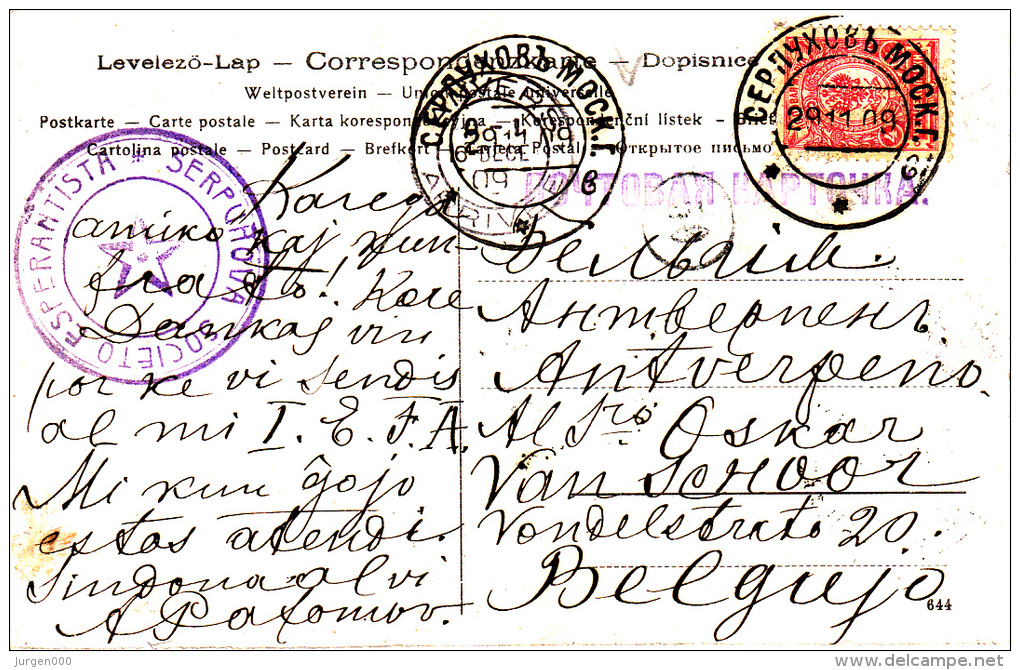 Levelezö-Lap — Correspondenzkarte — Dopisnice
Weltpostverein — Union postale universelle
Postkarte — Carte postale — Karta korespondencyjna — Korespondenční listek —
Cartolina postale — Postcard — Brefkort — Cartetja Postal — Открытое письмо
СЕРПУХОВЪ МОСК. Г.
29 11 09
6 DECE
09
в
СЕРПУХОВЪ МОСК. Г.
29 11 09
ПОЧТОВАЯ КАРТОЧКА.
SOCIETO ESPERANTISTA * SERPUĤOVA
Karega
amiko kaj kun-
frato! Kore
Dankas vin
por ke vi sendis
al mi I. E. F. A.
Mi kun ĝojo
estas atendi.
Sindona al vi
Бельгія.
Антверпенъ
Antverpeno.
Al Sro Oskar
Van Schoor
Vondelstrato 20.
Belgujo
644
Jurgen000
www.delcampe.net